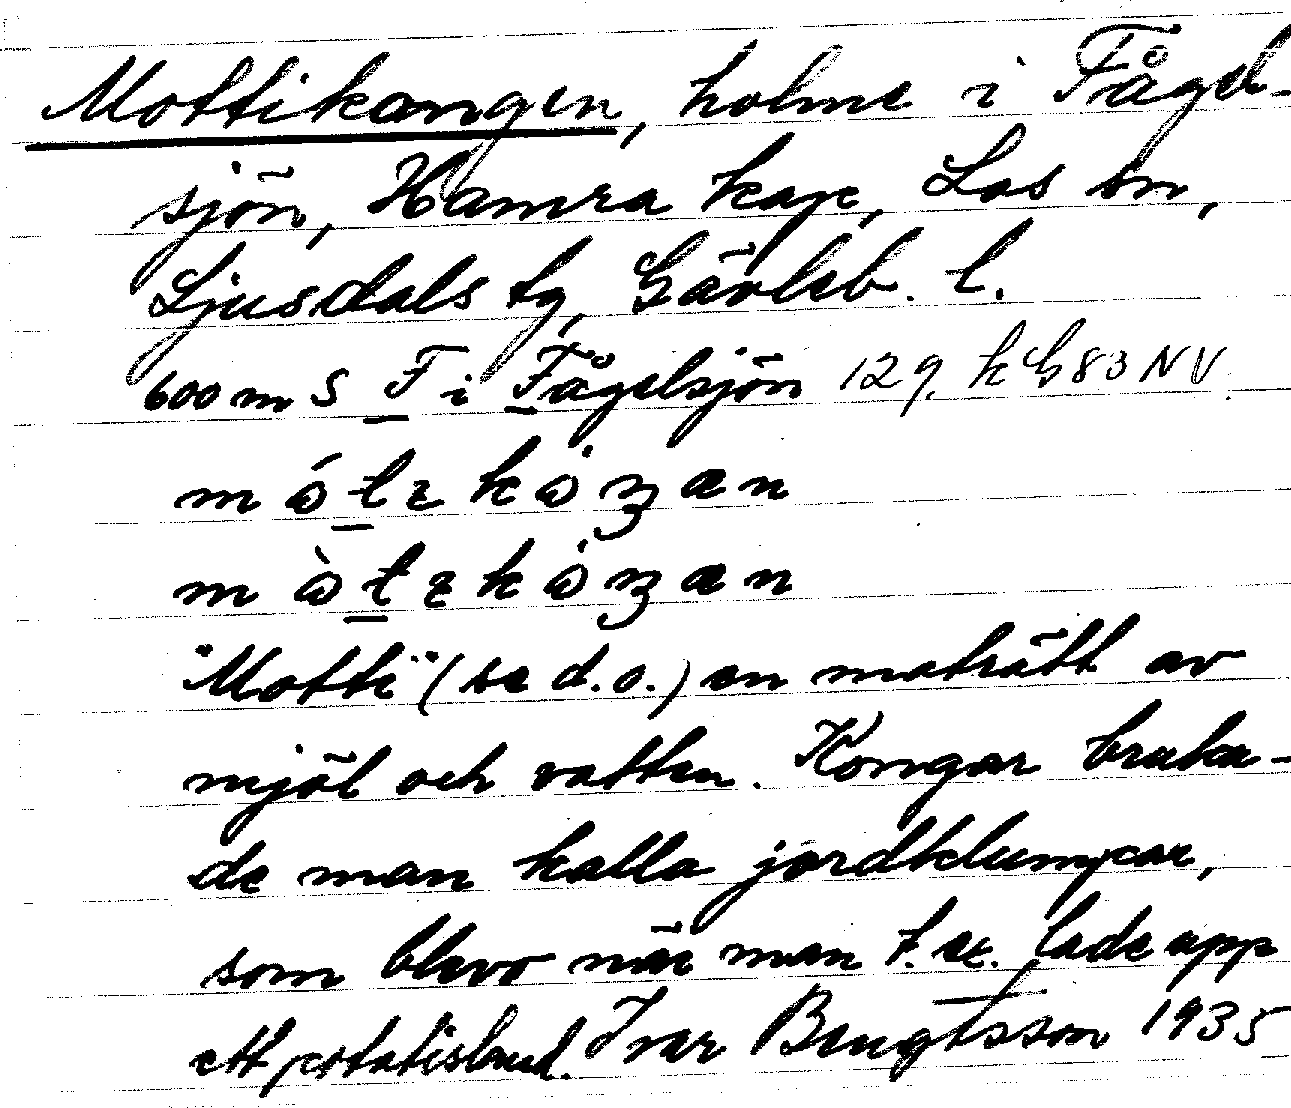 Mottikangen, holme i Fågel-
sjön, Hamra kap, Los sn,
Ljusdals tg, Gävleb. l.
600 m S F i Fågelsjön 129. k G 83 NV
"Motti" (se d.o.) en maträtt av
mjöl och vatten. Kongar bruka-
de man kalla jordklumpar,
som blevo när man t.ex. lade upp
ett potatisland. Ivar Bengtsson 1935